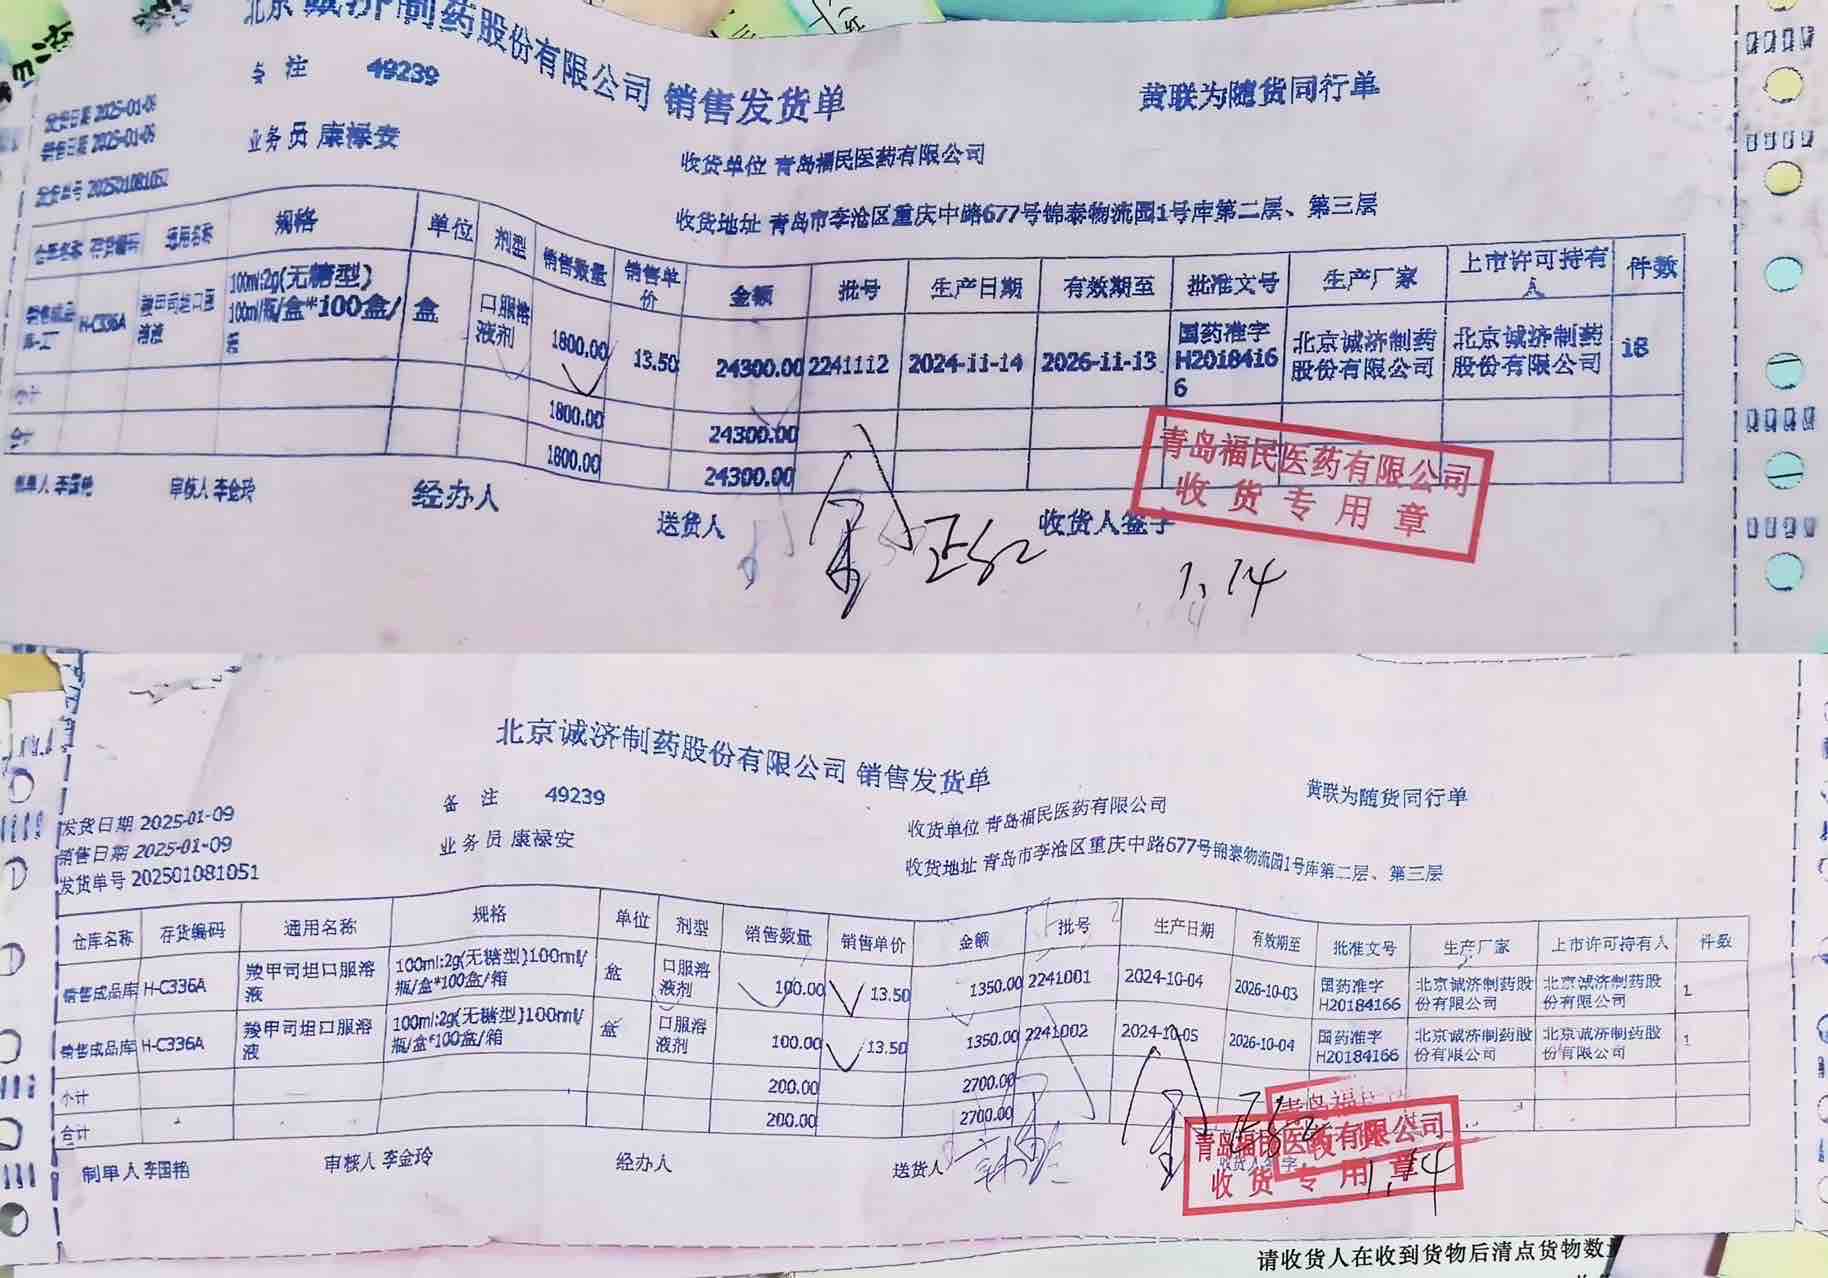 北京诚济制药股份有限公司 销售发货单
备 注 49239
黄联为随货同行单
发货日期 2025-01-09
销售日期 2025-01-09
业务员 康禄安
收货单位 青岛福民医药有限公司
发货单号 202501081052
收货地址 青岛市李沧区重庆中路677号锦泰物流园1号库第二层、第三层
仓库名称 存货编码 通用名称 规格 单位 剂型 销售数量 销售单价 金额 批号 生产日期 有效期至 批准文号 生产厂家 上市许可持有人 件数
H-C336A 羧甲司坦口服溶液 100ml:2g(无糖型)100ml/瓶/盒*100盒/箱 盒 口服溶液剂 1800.00 13.50 24300.00 2241112 2024-11-14 2026-11-13 国药准字H20184166 北京诚济制药股份有限公司 北京诚济制药股份有限公司 18
小计 1800.00 24300.00
合计 1800.00 24300.00
制单人 李国艳 审核人 李金玲 经办人 送货人 收货人签字
青岛福民医药有限公司
收货专用章
1.14
北京诚济制药股份有限公司 销售发货单
备 注 49239
黄联为随货同行单
发货日期 2025-01-09
销售日期 2025-01-09
业务员 康禄安
收货单位 青岛福民医药有限公司
发货单号 202501081051
收货地址 青岛市李沧区重庆中路677号锦泰物流园1号库第二层、第三层
仓库名称 存货编码 通用名称 规格 单位 剂型 销售数量 销售单价 金额 批号 生产日期 有效期至 批准文号 生产厂家 上市许可持有人 件数
销售成品库 H-C336A 羧甲司坦口服溶液 100ml:2g(无糖型)100ml/瓶/盒*100盒/箱 盒 口服溶液剂 100.00 13.50 1350.00 2241001 2024-10-04 2026-10-03 国药准字H20184166 北京诚济制药股份有限公司 北京诚济制药股份有限公司 1
销售成品库 H-C336A 羧甲司坦口服溶液 100ml:2g(无糖型)100ml/瓶/盒*100盒/箱 盒 口服溶液剂 100.00 13.50 1350.00 2241002 2024-10-05 2026-10-04 国药准字H20184166 北京诚济制药股份有限公司 北京诚济制药股份有限公司 1
小计 200.00 2700.00
合计 200.00 2700.00
制单人 李国艳 审核人 李金玲 经办人 送货人 收货人签字
青岛福
青岛福民医药有限公司
收货专用章
1.14
请收货人在收到货物后清点货物数